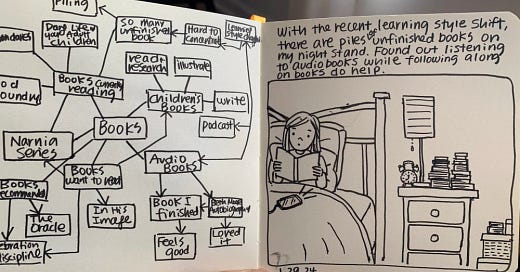 Piling
Dare Life w/
your Adult
children
So many
unfinished
book
Hard to
concentrate
Learning
style
read &
research
illustrate
Books currently
reading
Children's
books
write
podcast
Books
Narnia
series
Audio
Books
Books
want to read
Books
recommended
The
Oracle
In His
Image
Book I
finished
Autobiography
Feels
good
Loved
it
discipline
With the recent learning style shift,
there are piles of unfinished books on
my night stand. Found out listening
to audiobooks while following along
on books do help.
1.29.24